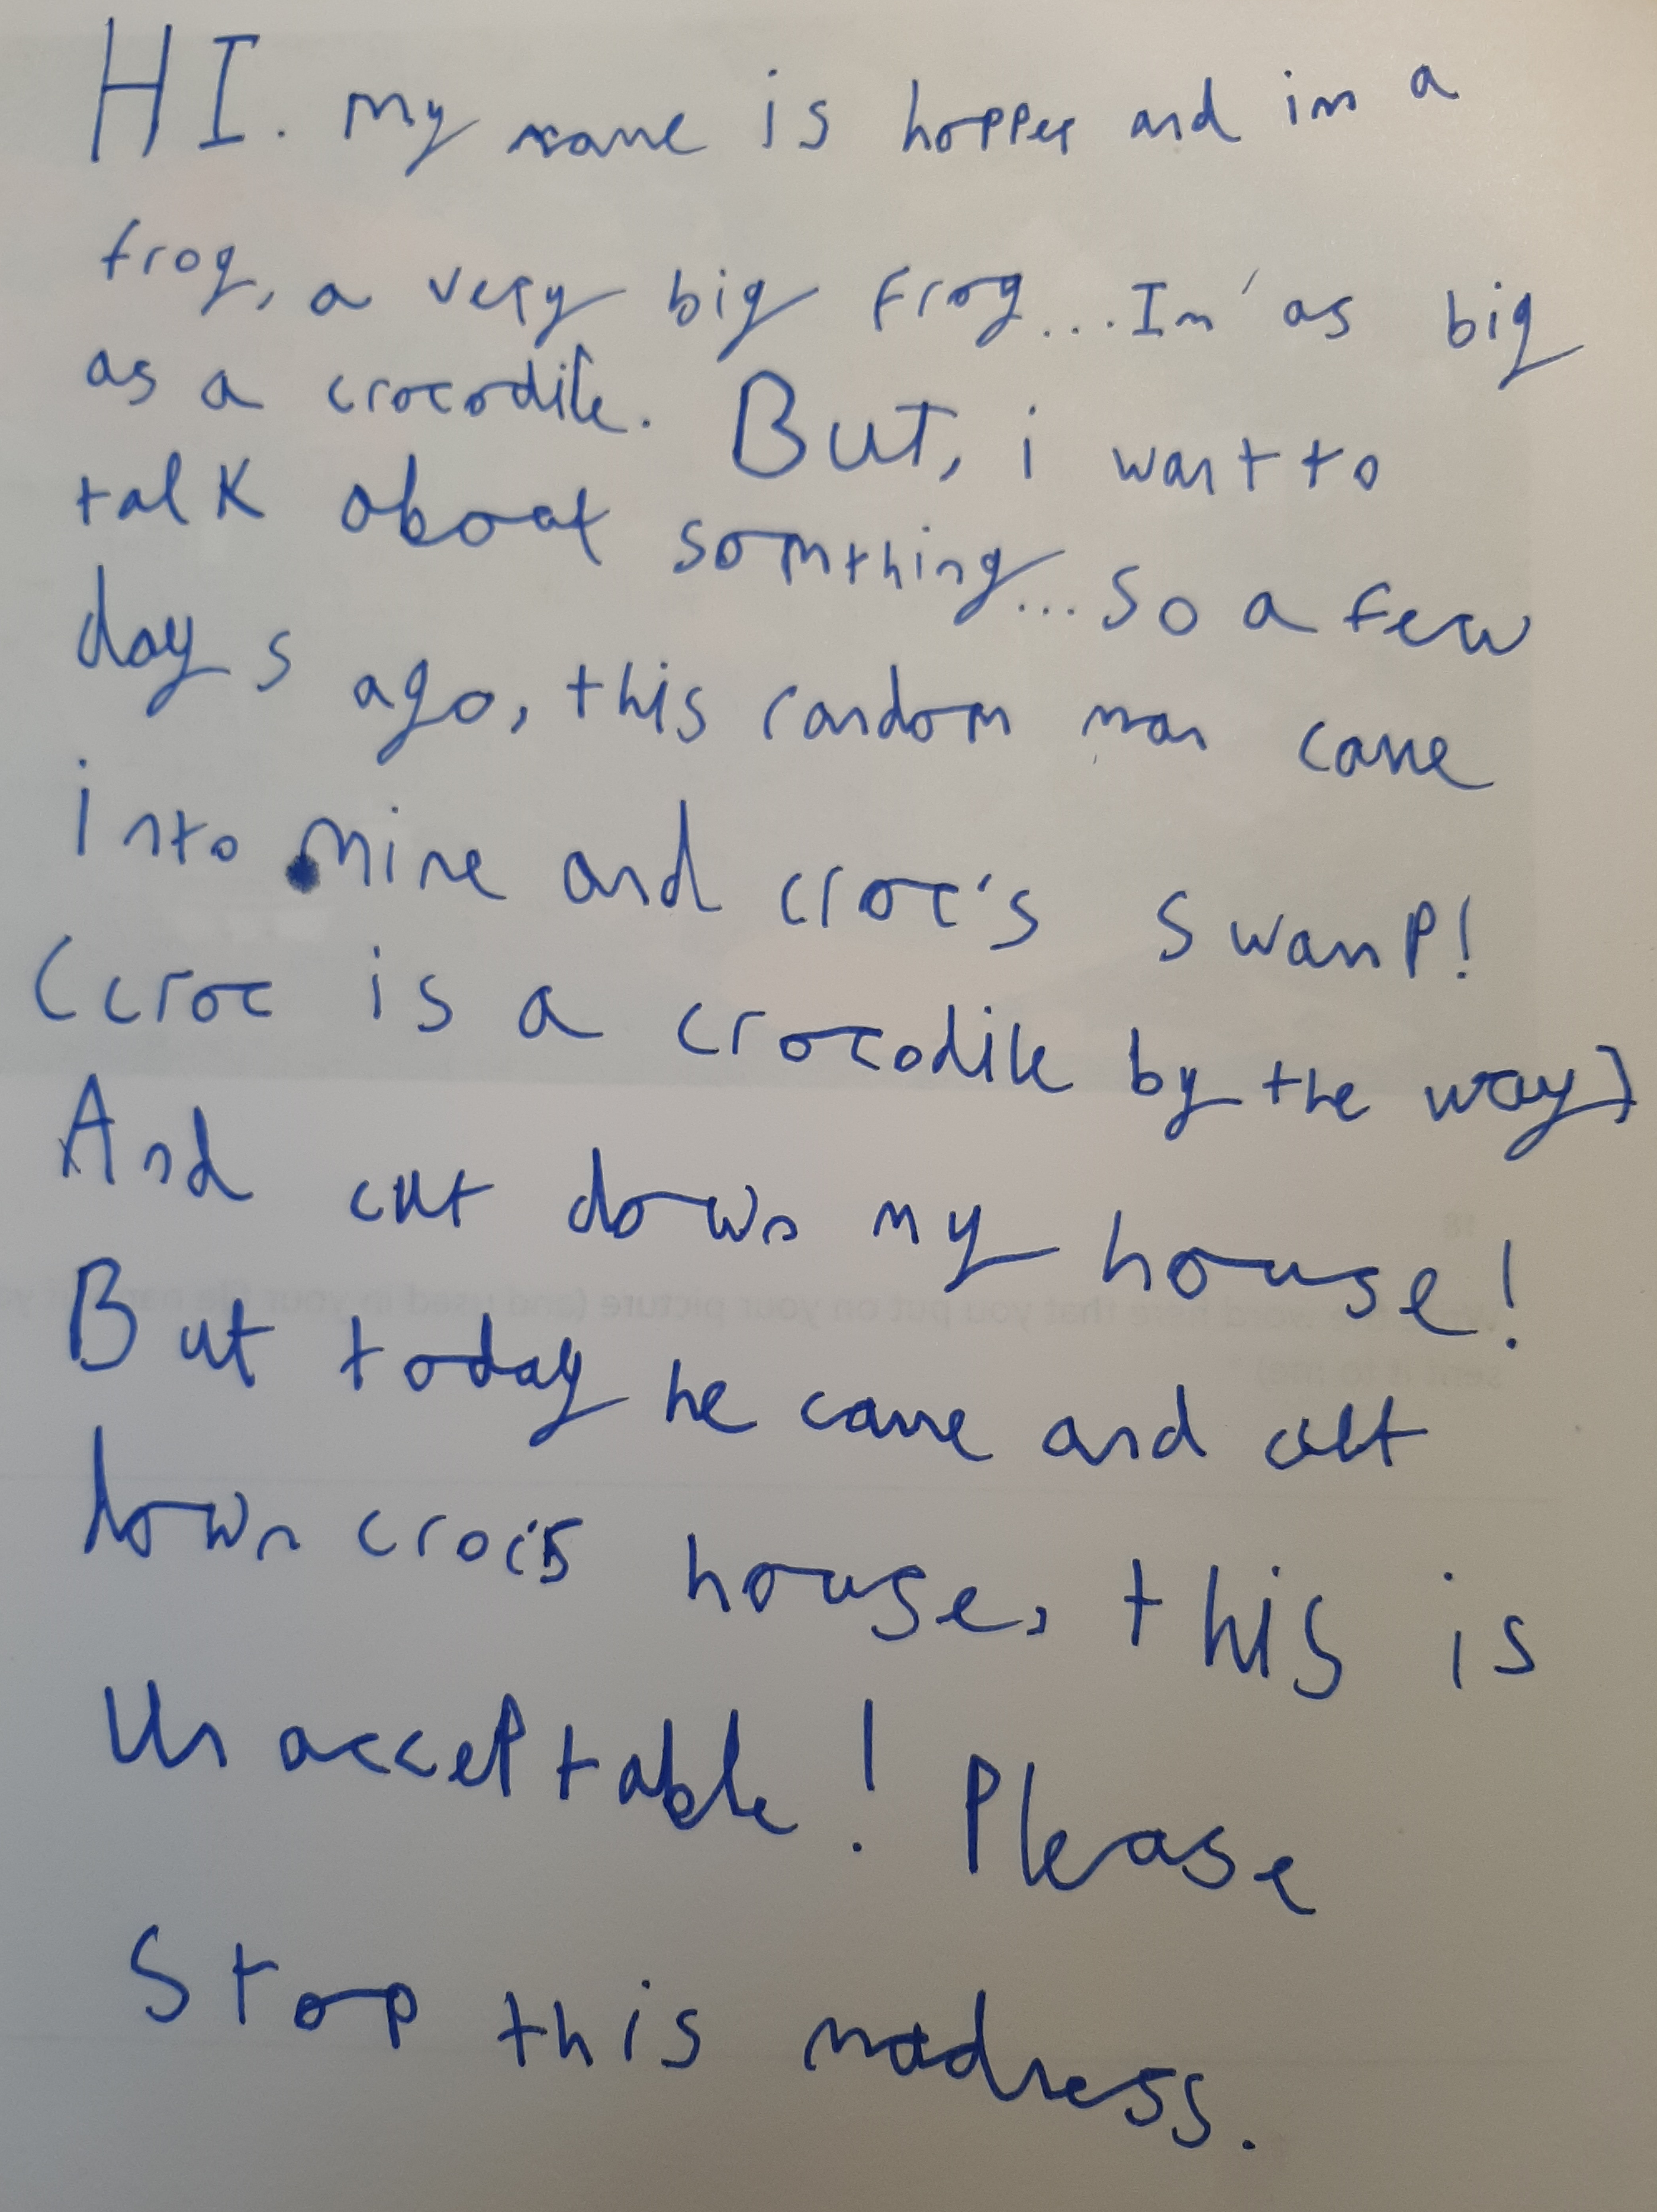 HI. my name is hopper and im a
frog, a very big frog...Im' as big
as a crocodile. But, i want to
talk about somthing...so a few
days ago, this random man came
into mine and croc's swamp!
(croc is a crocodile by the way)
And cut down my house!
But today he came and cut
down croc's house, this is
Unacceptable! Please
Stop this madness.